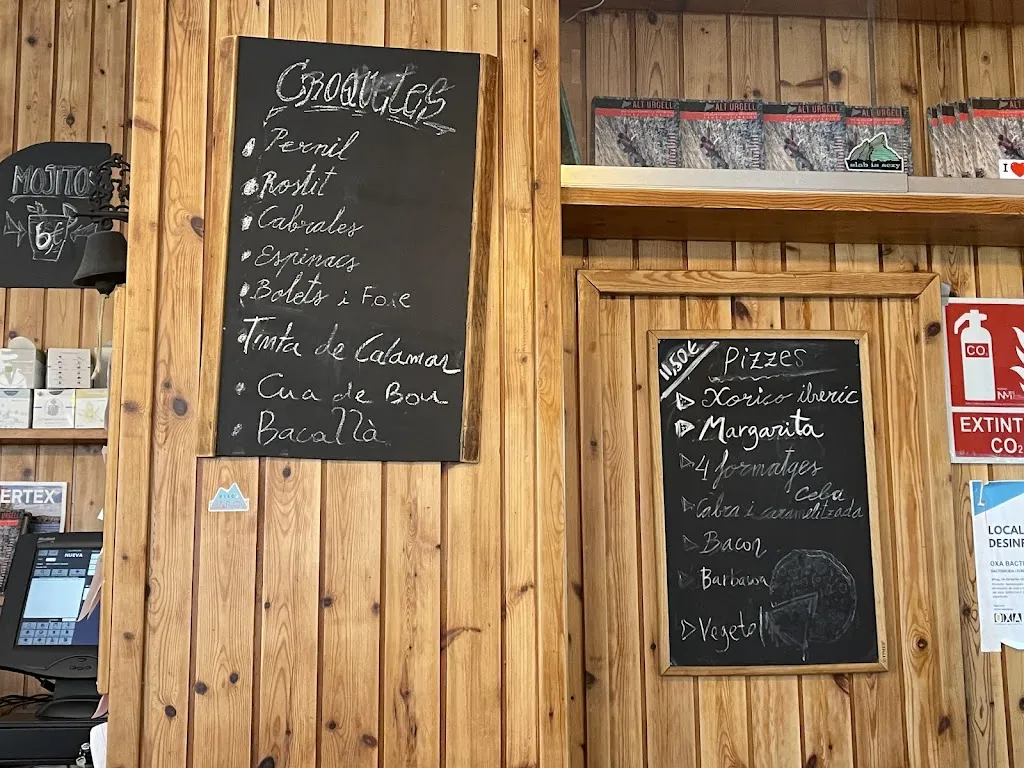 CROQUETES
Pernil
Rostit
Cabrales
Espinacs
Bolets i Foie
Tinta de Calamar
Cua de Bou
Bacallà
MOJITOS
6€
11,50€
Pizzes
Xorico iberic
Margarita
4 formatges
Cabra i ceba caramelitzada
Bacon
Barbacoa
Vegetal
ALT URGELL
ALT URGELL
ALT URGELL
ALT URGELL
slab is sexy
I
CO2
EXTINT
CO2
LOCAL
DESINF
OXA BACT
OXA
ERTEX
NUEVA